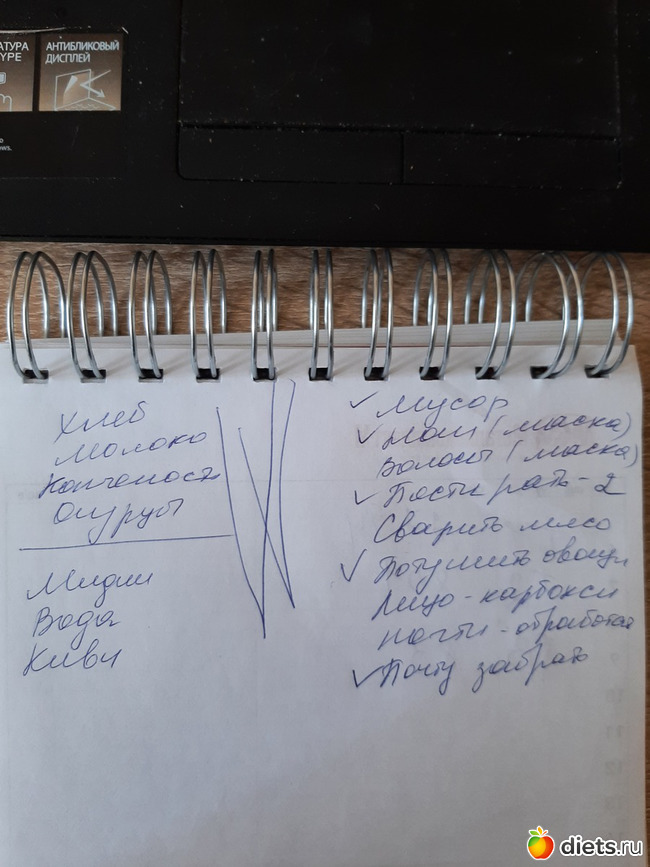 АТУРА
YPE
АНТИБЛИКОВЫЙ
ДИСПЛЕЙ
ws.
Хлеб
Молоко
Копченость
Огурцы
Мидии
Вода
Киви
✓ Мусор
✓ (маска)
Волосы (маска)
✓ Постирать - 2
Сварить мясо
✓ Потушить овощи
Лицо - карбокси
Ногти - обработка
✓ Почту забрать
diets.ru